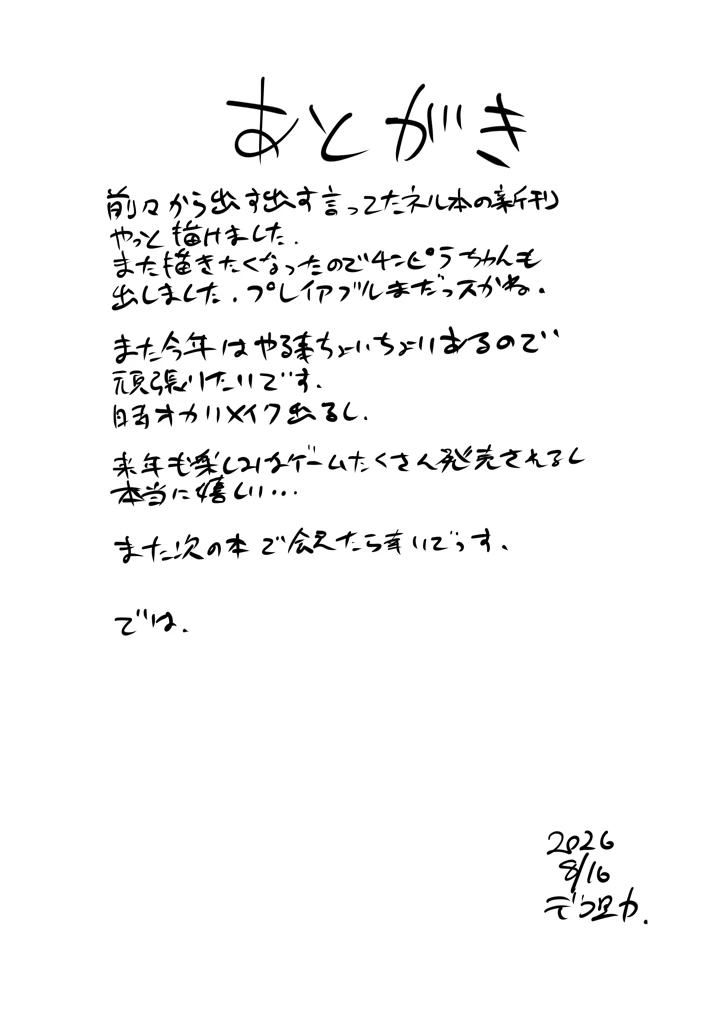 あとがき
前々から出す出す言ってたネル本の新刊
やっと描けました.
また描きたくなったのでチンピラちゃんも
出しました.プレイアブルまだっスかね.
また今年はやる事ちょいちょいあるので
頑張りたいです.
時オカリメイク出るし.
来年も楽しみなゲームたくさん発売されるし
本当に嬉しい…
また次の本で会えたら幸いでっす.
では.
2026
8/16